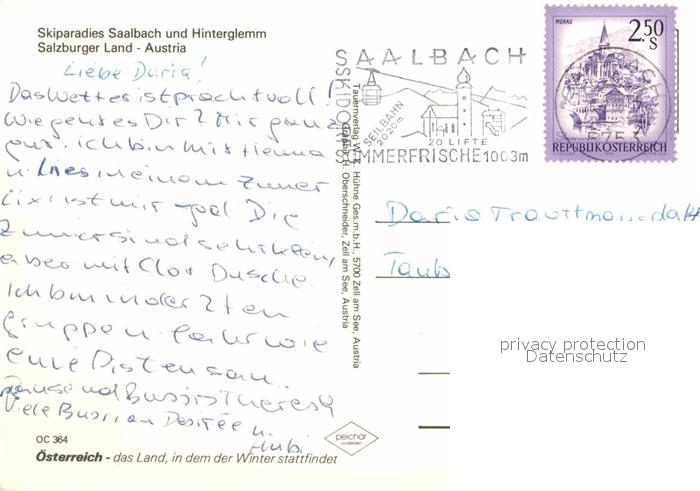 Skiparadies Saalbach und Hinterglemm
Salzburger Land - Austria
Liebe Daria!
Das Wetter ist prachtvoll!
Wie geht es Dir? Mir ganz
gut. Ich bin mit Henna
u. Lies in einem Zimmer
ist mir Die
Zimmer sind
aber mit Clo + Dusche.
Ich bin in der 2ten
Gruppe u. fahr wie
eine Pistensau.
Tausend Bussis Theresa
Viele Bussi an Desirée u.
Hubi
OC 364
Österreich - das Land, in dem der Winter stattfindet
peichär
Tauernverlag W. K. Hühne Ges.m.b.H., 5700 Zell am See, Austria
Graphik H. Oberschneider, Zell am See, Austria
SAALBACH
SKIDORF
SEILBAHN
2020m
20 LIFTE
SOMMERFRISCHE 1003m
MURAU
2.50
S
REPUBLIK ÖSTERREICH
5753
Daria Trauttmansdorff
privacy protection
Datenschutz